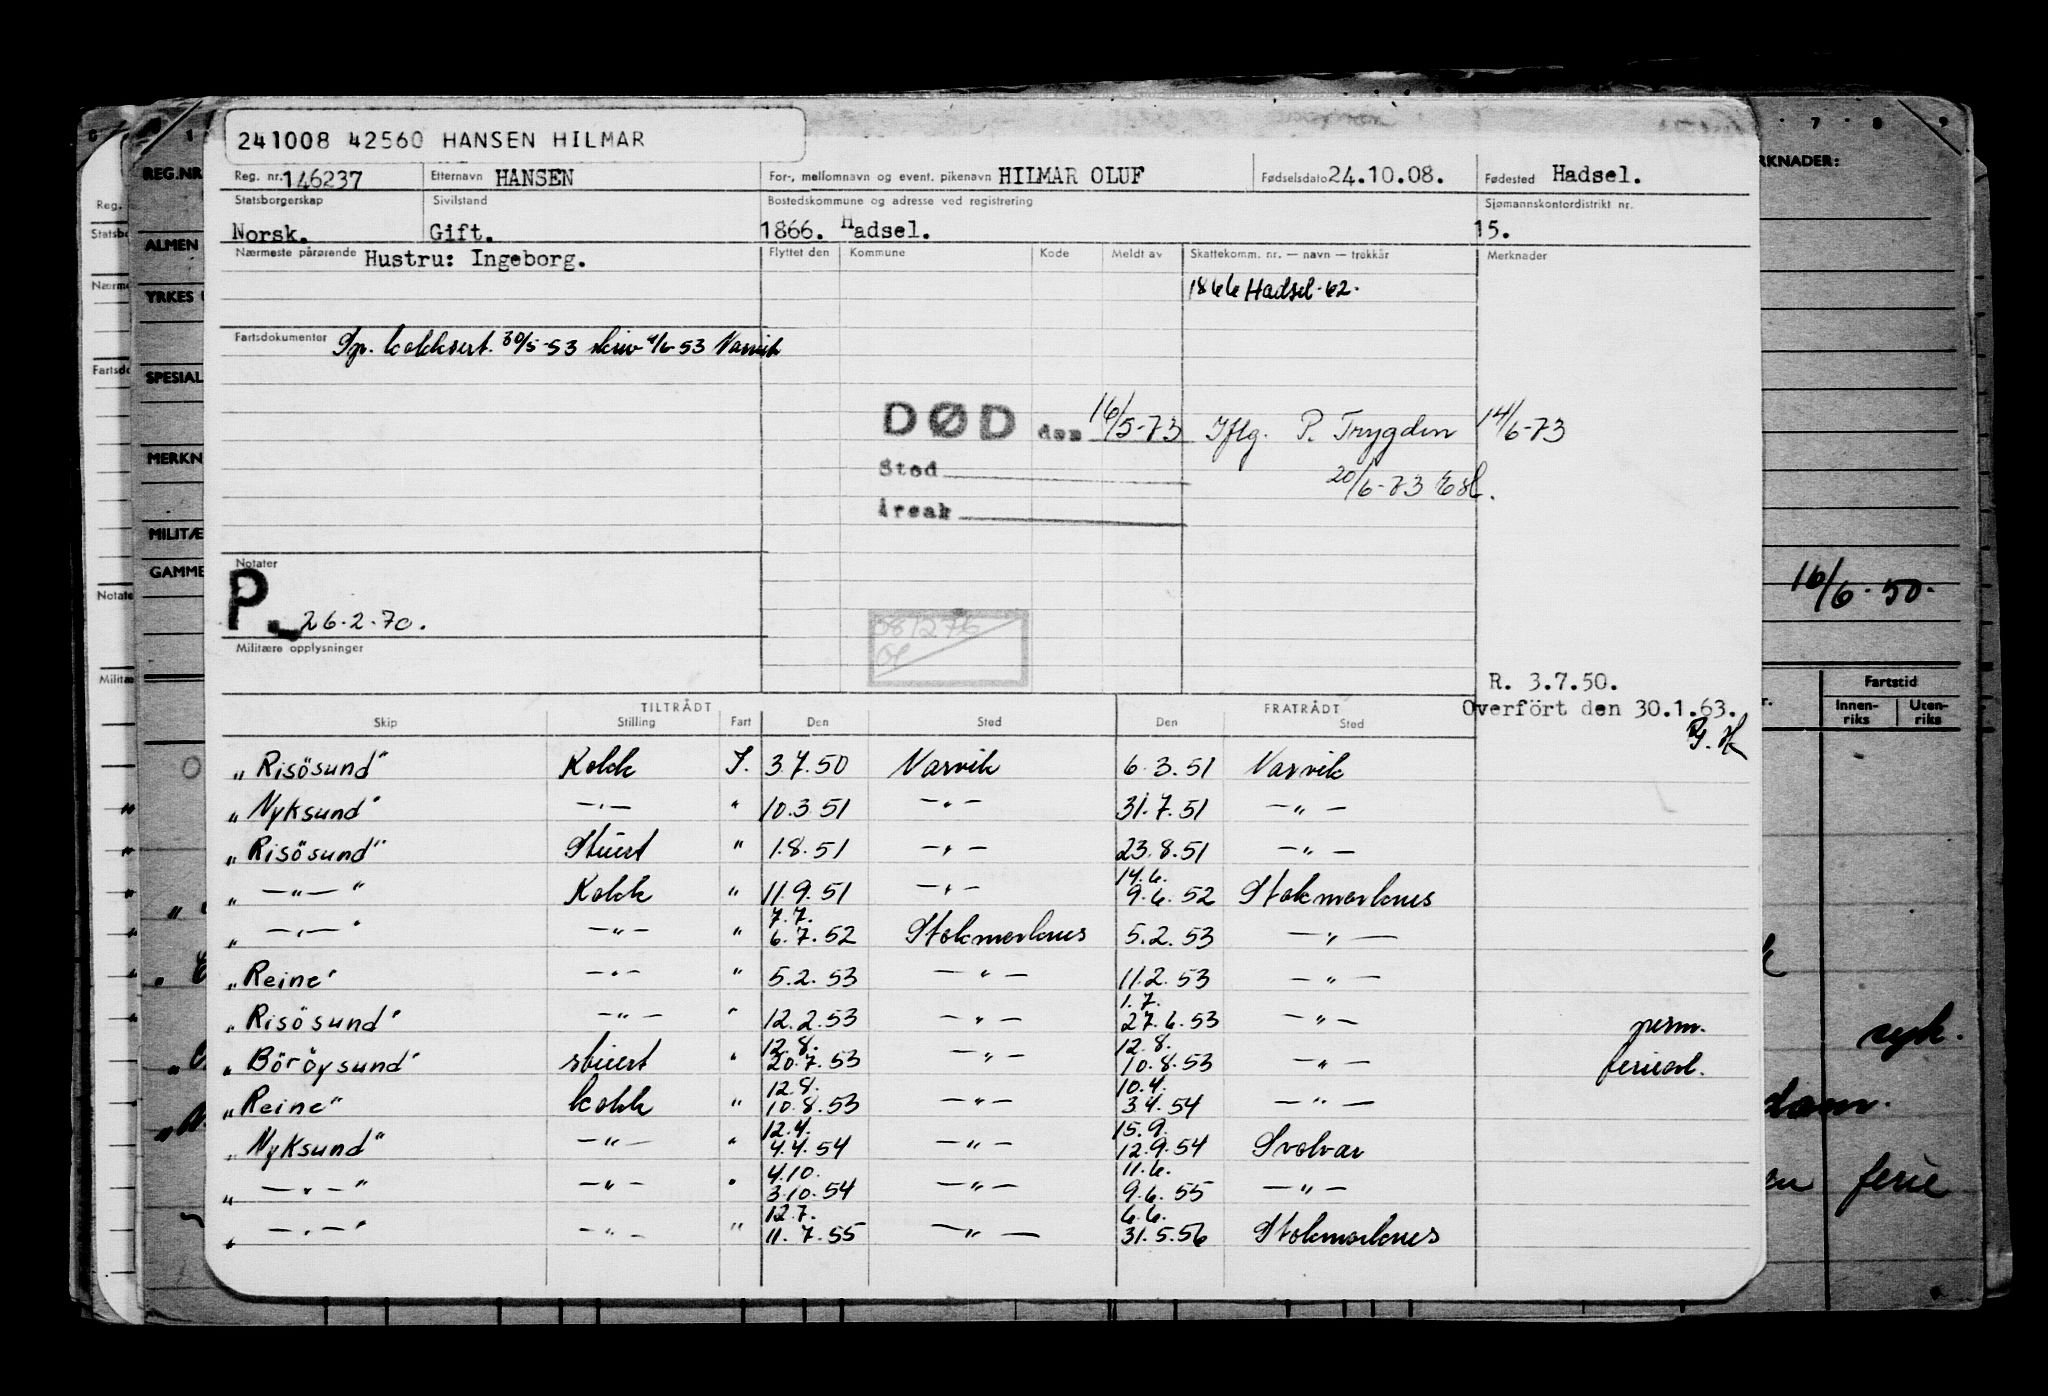 241008 42560 HANSEN HILMAR
Reg. nr. 146237 Etternavn HANSEN For-, mellomnavn og event. pikenavn HILMAR OLUF Fødselsdato 24.10.08. Fødested Hadsel.
Statsborgerskap Sivilstand Bostedskommune og adresse ved registrering Sjømannskontordistrikt nr.
Norsk. Gift. 1866. Hadsel. 15.
Nærmeste pårørende Hustru: Ingeborg. Flyttet den Kommune Kode Meldt av Skattekomm. nr. — navn — trekkår Merknader
1866 Hadsel-62.
Fartsdokumenter Sp. kokksert. 30/5-53 4/6-53 Narvik
DØD den 16/5-73 Iflg. P. Trygden 14/6-73
Sted 20/6-73
Årsak
Notater
P. 26.2.70.
Militære opplysninger
R. 3.7.50.
Overfört den 30.1.63.
TILTRÅDT FRATRÅDT
Skip Stilling Fart Den Sted Den Sted
„Risösund" Kokk I. 3.7.50 Narvik 6.3.51 Narvik
„Nyksund" —„— " 10.3.51 —„— 31.7.51 —„—
„Risösund" Stuert " 1.8.51 —„— 23.8.51 —„—
14.6.
„—„—" Kokk " 11.9.51 —„— 9.6.52 Stokmarknes
7.7.
„—„—" —„— " 6.7.52 Stokmarknes 5.2.53 —„—
„Reine" —„— " 5.2.53 —„— 11.2.53 —„—
1.7.
„Risösund" —„— " 12.2.53 —„— 27.6.53 —„— perm.
12.8. 12.8.
„Böröysund" stuert " 20.7.53 —„— 10.8.53 —„— ferieavl.
12.8. 10.4.
„Reine" kokk " 10.8.53 —„— 3.4.54 —„—
12.4. 15.9.
„Nyksund" —„— " 4.4.54 —„— 12.9.54 Svolvær
4.10. 11.6.
„—„—" —„— " 3.10.54 —„— 9.6.55 —„—
12.7. 6.6.
„—„—" —„— " 11.7.55 —„— 31.5.56 Stokmarknes
REG.NR
ALMEN
YRKES
SPESIAL
MERKN
MILITÆ
GAMME
Reg.
Statsbo
Nærme
Fartsdo
Notate
Militæ
7 8 9
RKNADER:
16/6-50.
Fartstid
Innen-
riks
Uten-
riks
syk.
ferie